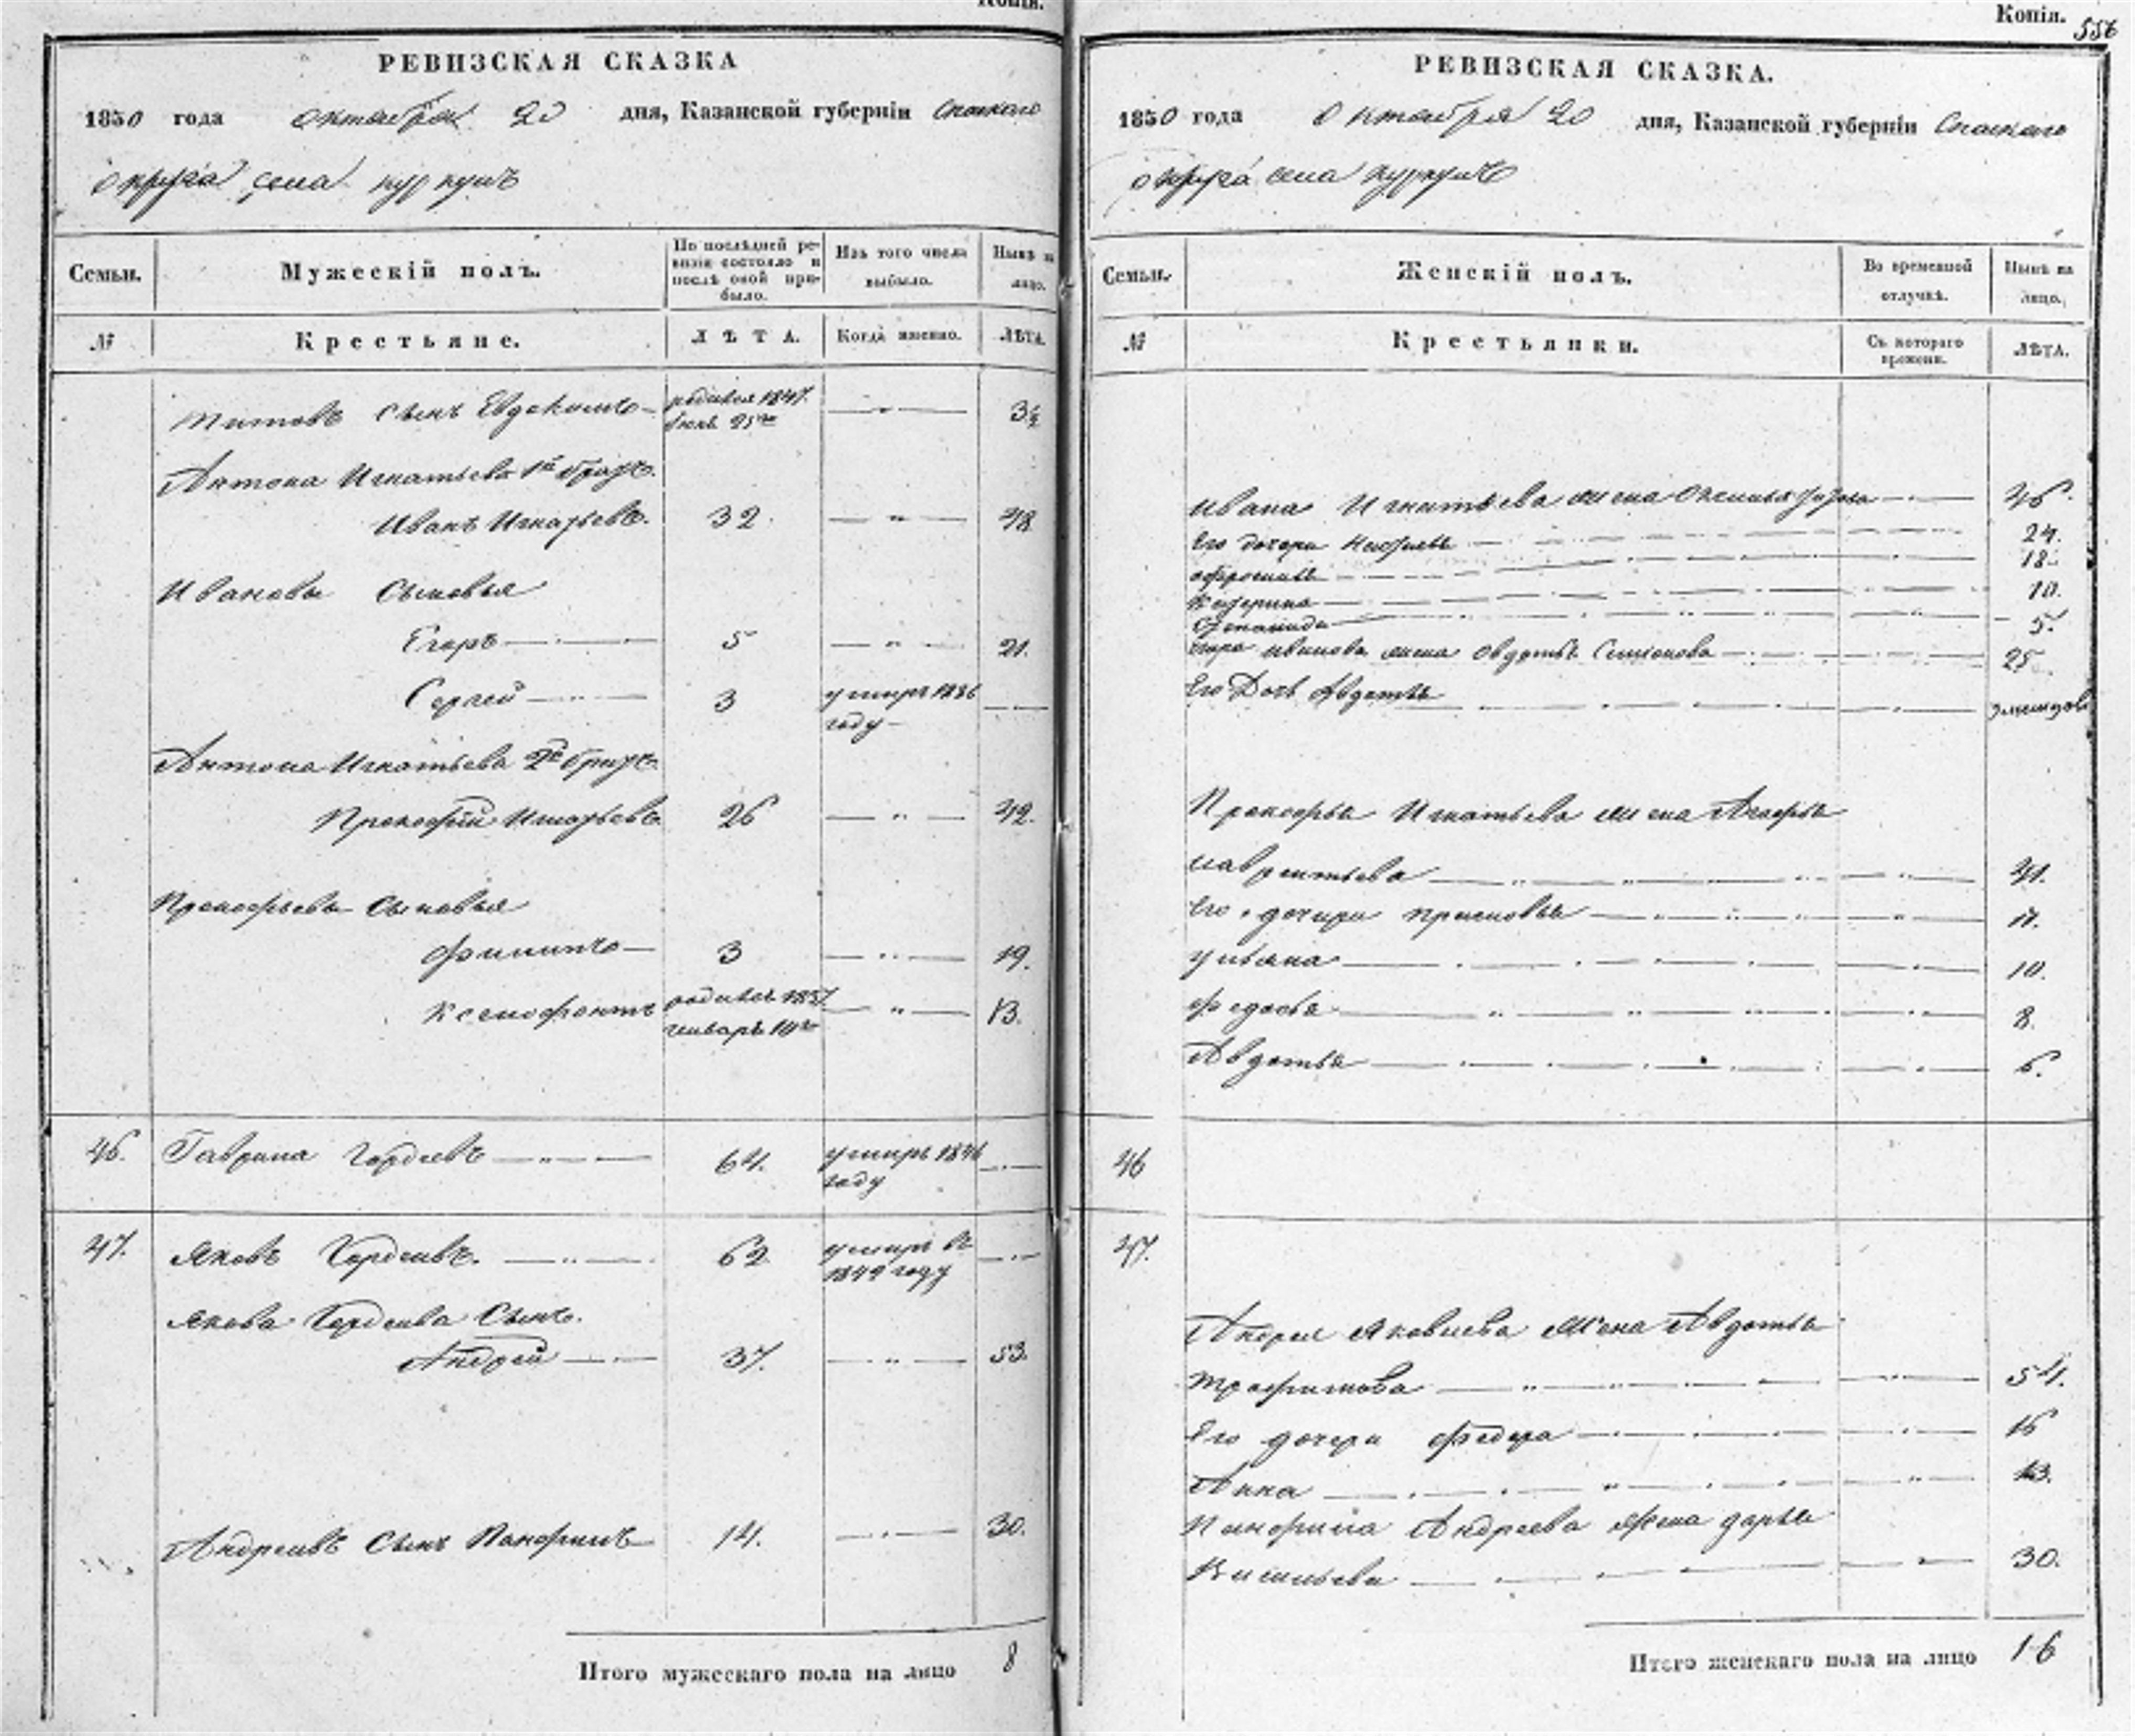 Копія.
РЕВИЗСКАЯ СКАЗКА
1850 года октября 20 дня, Казанской губерніи Спаскаго
округа села
Семьи.
Мужескій полъ.
По послѣдней ре-
визіи состояло и
послѣ оной при-
было.
Изъ того числа
выбыло.
Нынѣ на
лицо.
№
Крестьяне.
ЛѢТА.
Когда именно.
ЛѢТА.
Титовъ сынъ Евдокимъ родился 1847. 3½
Антона Игнатьева 1й братъ
Иванъ Игнатьевъ. 32. 48
Ивановы Сыновья
Егоръ 5 21.
Сергей 3 умиръ 1836
году
Антона Игнатьева 2й братъ
Прокофій Игнатьевъ 26 42.
Прокофьевы Сыновья
Филипъ 3 19.
Ксенофонтъ родился 1837 13.
генваря
46. Гаврила Гордеевъ 64. умиръ 1846
году
47. Яковъ Гордеивъ. 62 умиръ въ
1849 году
Якова Гордеива Сынъ.
Андрей 37. 53.
Андреивъ Сынъ Панфилъ 14. 30.
Итого мужескаго пола на лицо 8
Копія.
556
РЕВИЗСКАЯ СКАЗКА.
1850 года Октября 20 дня, Казанской губерніи Спаскаго
округа села
Семьи.
Женскій полъ.
Во временной
отлучкѣ.
Нынѣ на
лицо.
№
Крестьянки.
Съ котораго
времени.
ЛѢТА.
Ивана Игнатьева жена 46.
Его дочери 24.
Афросинья 18.
Катерина 10.
Степанида 5.
Егора Иванова жена Овдотья Симіонова 25
Его Дочь Авдотья
Прокофья Игнатьева жена Агафья
Лаврентьева 41.
Его дочери Прасковья 17.
Ульяна 10.
Федосья 8.
Авдотья 6.
46
47.
Андрея Яковлева Жена Авдотья
Трофимова 54.
Его дочери Федора 16
Анна 13.
Панфила Андреева жена дарья
Васильева 30.
Итого женскаго пола на лицо 16